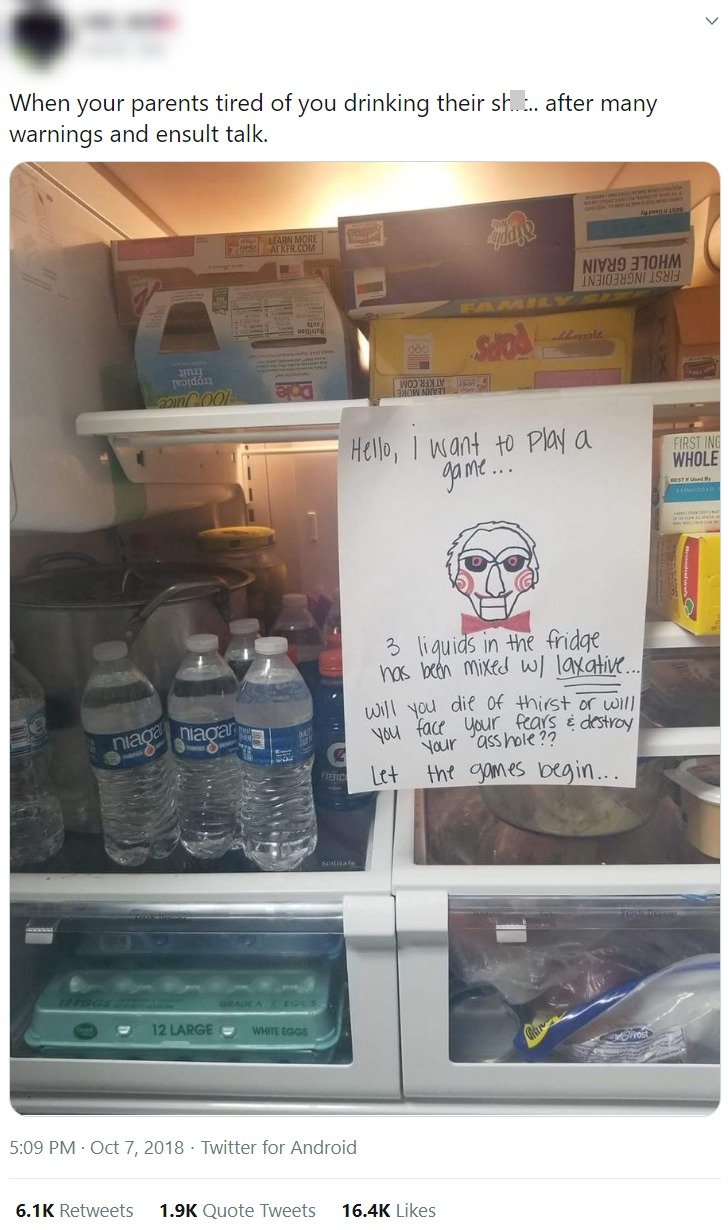 When your parents tired of you drinking their sh t.. after many
warnings and ensult talk.
LEARN MORE
AT KFR.COM
FAMILY
BEST If Used By
WHOLE GRAIN
FIRST INGREDIENT
FAMILY SIZE
Nutrition
Facts
tropical
fruit
100% Juice
Dole
POPS
Kellogg's
LEARN MORE
AT KFR.COM
FIRST ING
WHOLE
BEST If Used By
Hello, i want to play a
game...
3 liquids in the fridge
has been mixed w/ laxative...
will you die of thirst or will
you face your fears & destroy
your asshole??
Let the games begin...
niagara
PURIFIED
niagara
PURIFIED
G
FIERCE
Spillsafe
12 EGGS GRADE A EGGS
12 LARGE WHITE EGGS
5:09 PM · Oct 7, 2018 · Twitter for Android
6.1K Retweets 1.9K Quote Tweets 16.4K Likes